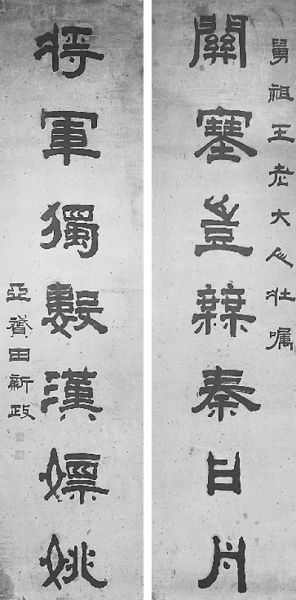 舅祖王老大人壯囑
關塞豈無秦日月
將軍獨數漢嫖姚
亞田新政